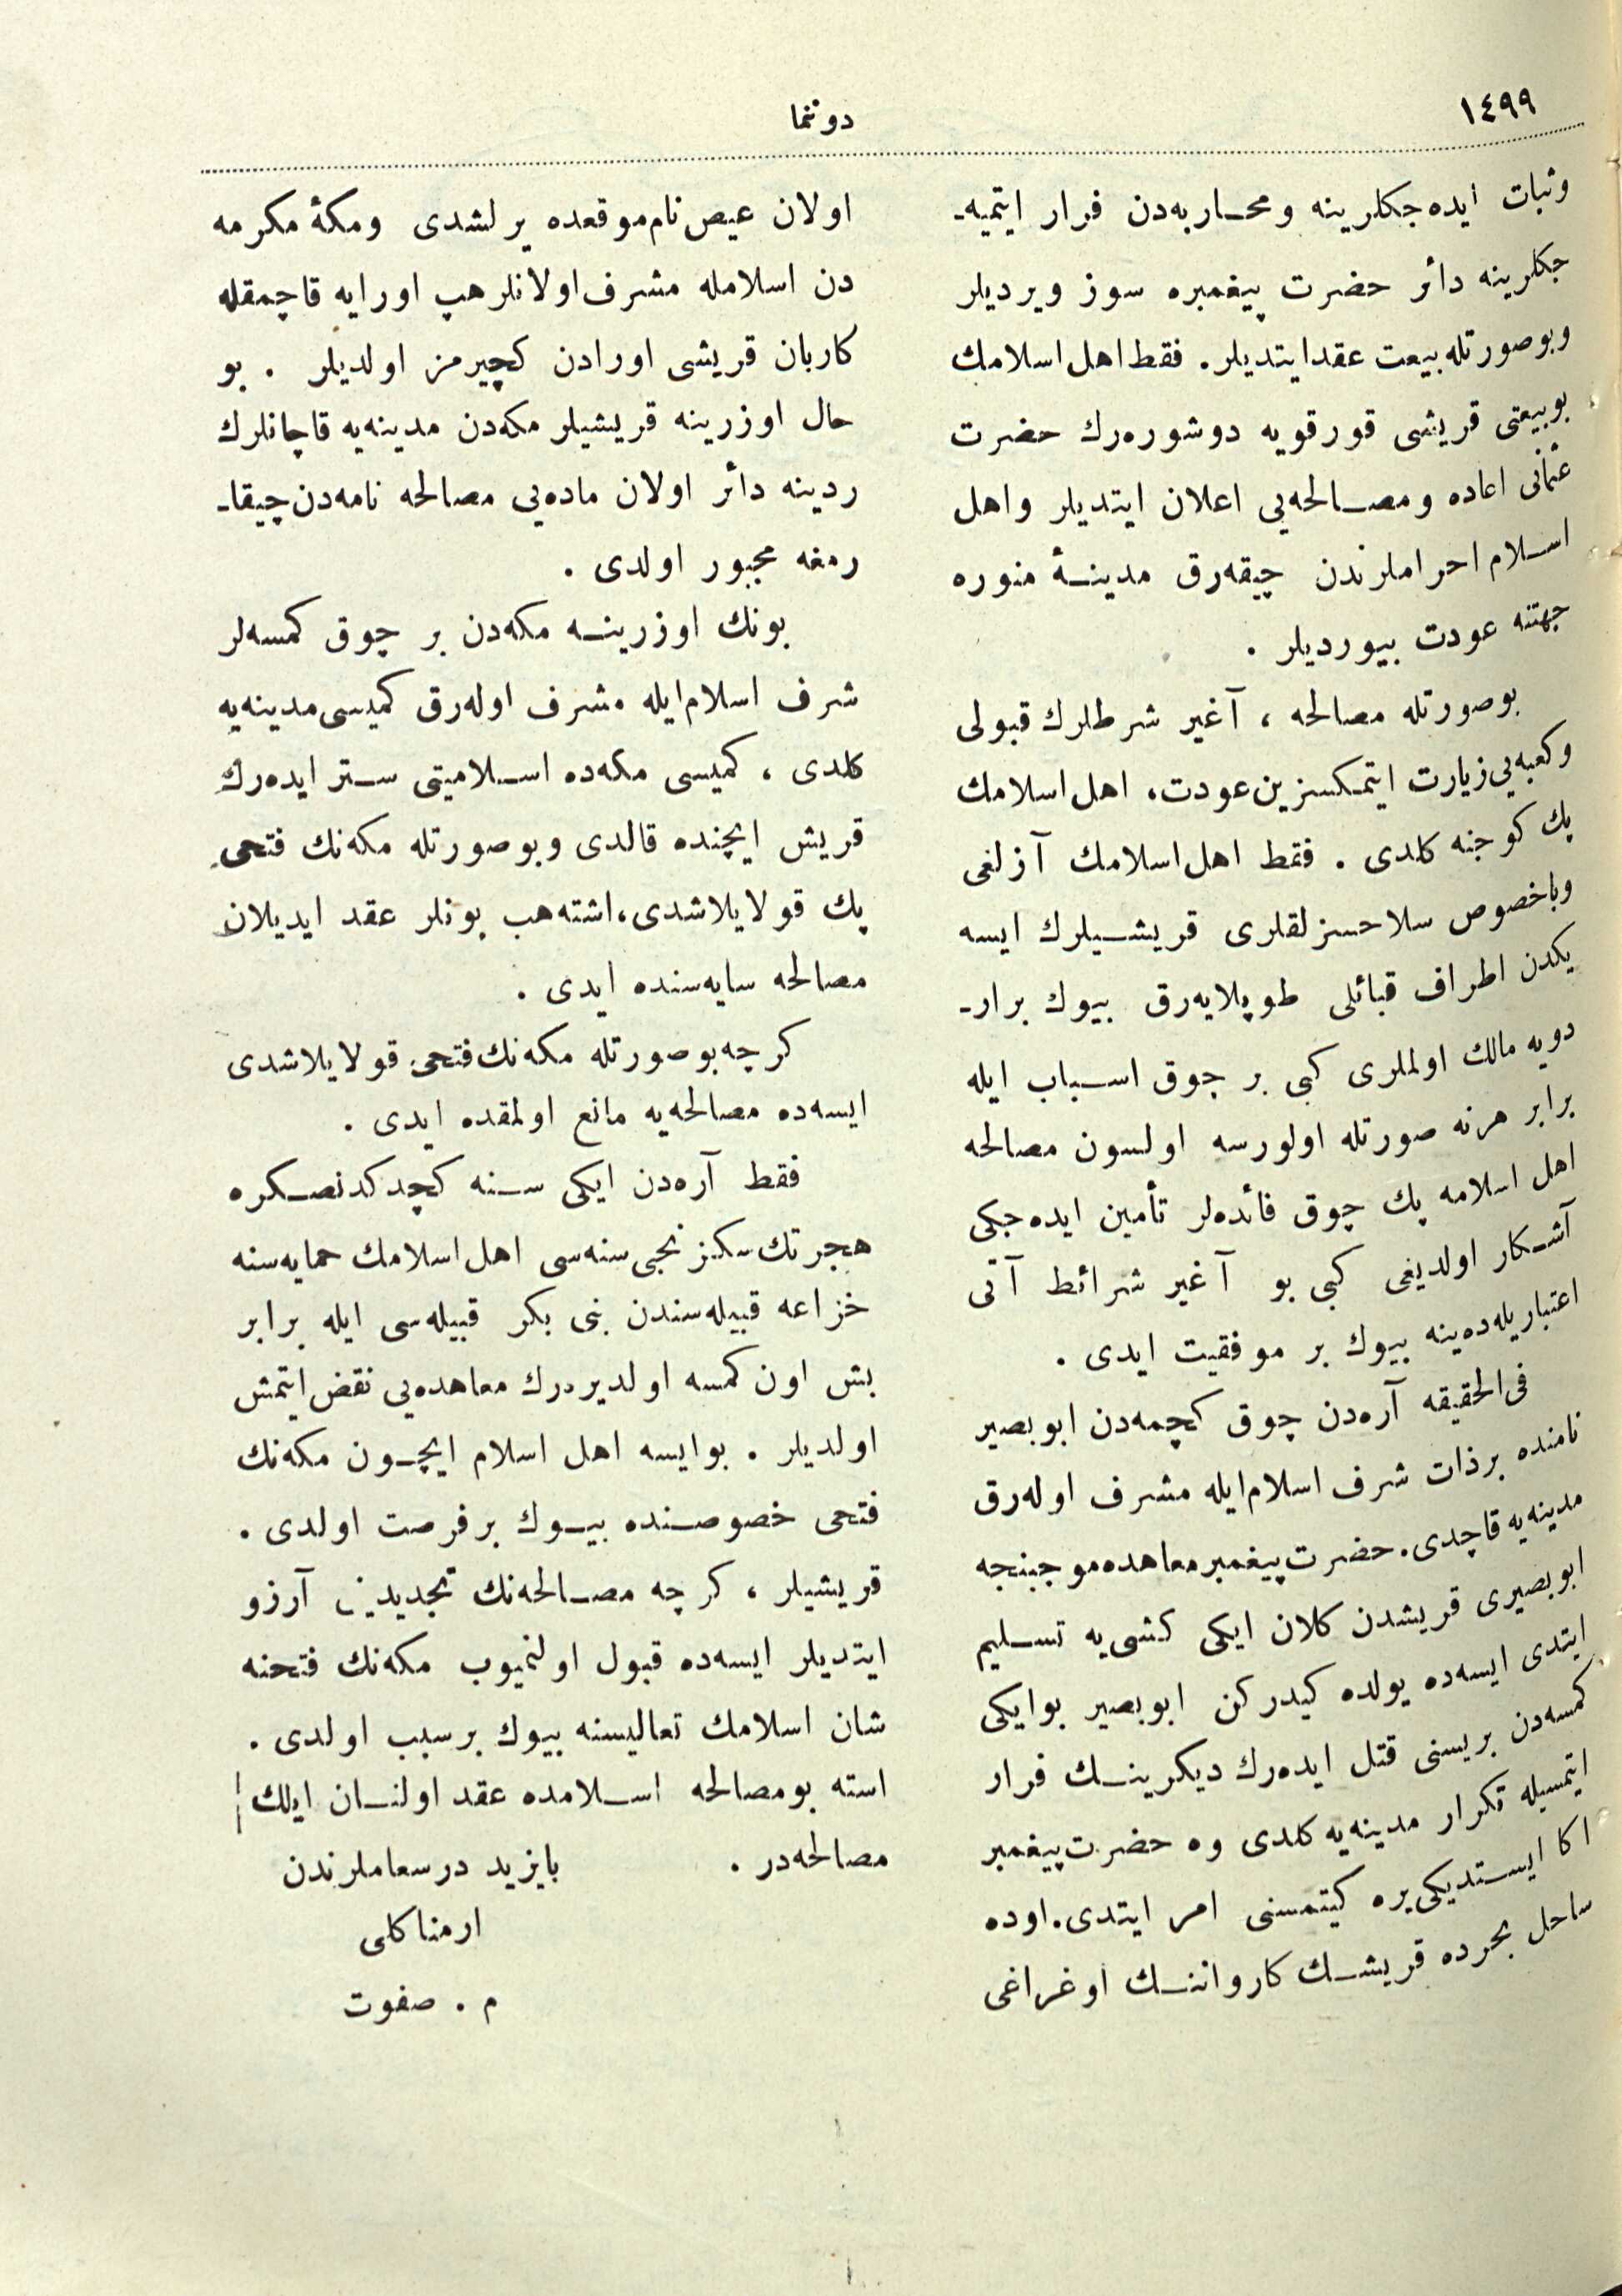 ١٤٩٩
دوننما
وثبات ایده‌جكلرینه ومحاربه‌دن فرار ایتمیه‌ـ
جكلرینه دائر حضرت پیغمبره سوز ویردیلر
وبوصورتله بیعت عقدایتدیلر. فقط اهل اسلامك
بوبیعتی قریشی قورقویه دوشوره‌رك حضرت
عثمانی اعاده ومصالحه‌یی اعلان ایتدیلر واهل
اسلام احراملرندن چیقه‌رق مدینۀ منوره
جهتنه عودت بیوردیلر .
بوصورتله مصالحه ، آغیر شرطلرك قبولی
وكعبه‌یی زیارت ایتمكسزین عودت، اهل اسلامك
پك كوجنه كلدی . فقط اهل اسلامك آزلغی
وباخصوص سلاحسزلقلری قریشیلرك ایسه
یكدن اطراف قبائلی طوپلایه‌رق بیوك برارـ
دویه مالك اولملری كبی بر چوق اسباب ایله
برابر هرنه صورتله اولورسه اولسون مصالحه
اهل اسلامه پك چوق فائده‌لر تأمین ایده‌جكی
آشكار اولدیغی كبی بو آغیر شرائط آتی
اعتباریله‌ده‌ینه بیوك بر موفقیت ایدی .
فی‌الحقیقه آره‌دن چوق كچمه‌دن ابوبصیر
نامنده برذات شرف اسلام‌ایله مشرف اوله‌رق
مدینه‌یه قاچدی. حضرت پیغمبر معاهده موجبنجه
ابوبصیری قریشدن كلان ایكی كشی‌یه تسلیم
ایتدی ایسه‌ده یولده كیدركن ابوبصیر بوایكی
كمسه‌دن بریسنی قتل ایده‌رك دیكرینك فرار
ایتمسیله تكرار مدینه‌یه كلدی وه حضرت پیغمبر
اكا ایستدیكی یره كیتمسنی امر ایتدی. اوده
ساحل بحرده قریشك كاروانك اوغراغی
اولان عیص نام موقعده یرلشدی ومكۀ مكرمه
دن اسلامله مشرف اولانلر هپ اورایه قاچمقله
كاربان قریشی اورادن كچیرمز اولدیلر . بو
حال اوزرینه قریشیلر مكه‌دن مدینه‌یه قاچانلرك
ردینه دائر اولان ماده‌یی مصالحه نامه‌دن چیقاـ
رمغه مجبور اولدی .
بونك اوزرینه مكه‌دن بر چوق كمسه‌لر
شرف اسلام‌ایله مشرف اوله‌رق كمیسی مدینه‌یه
كلدی ، كمیسی مكه‌ده اسلامیتی ستر ایده‌رك
قریش ایچنده قالدی وبوصورتله مكه‌نك فتحی
پك قولایلاشدی، اشته هب بونلر عقد ایدیلان
مصالحه سایه‌سنده ایدی .
كرچه بوصورتله مكه‌نك فتحی قولایلاشدی
ایسه‌ده مصالحه‌یه مانع اولمقده ایدی .
فقط آره‌دن ایكی سنه كچدكدنصكره
هجرتك سكزنجی سنه‌سی اهل اسلامك حمایه‌سنه
خزاعه قبیله‌سندن بنی بكر قبیله‌سی ایله برابر
بش اون كمسه اولدیررك معاهده‌یی نقض ایتمش
اولدیلر . بوایسه اهل اسلام ایچون مكه‌نك
فتحی خصوصنده بیوك برفرصت اولدی .
قریشیلر ، كرچه مصالحه‌نك تجدیدینی آرزو
ایتدیلر ایسه‌ده قبول اولنمیوب مكه‌نك فتحنه
شان اسلامك تعالیسنه بیوك برسبب اولدی .
استه بومصالحه اسلامده عقد اولنان ایلك
مصالحه‌در .
بایزید درسعاملرندن
ارمناكلی
م . صفوت